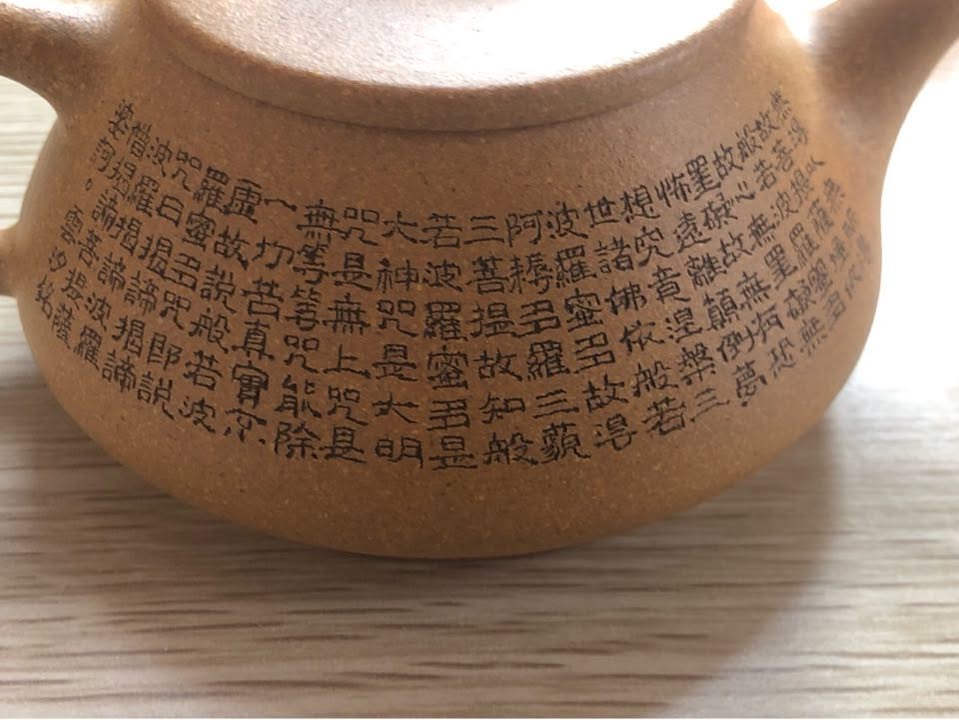 故菩提薩埵依
般若波羅蜜多
故心無罣礙無
罣礙故無有恐
怖遠離顛倒夢
想究竟涅槃三
世諸佛依般若
波羅蜜多故得
阿耨多羅三藐
三菩提故知般
若波羅蜜多是
大神咒是大明
咒是無上咒是
無等等咒能除
一切苦真實不
虛故說般若波
羅蜜多咒即說
咒曰揭諦揭諦
波羅揭諦波羅
僧揭諦菩提薩
婆訶。雲汐銘